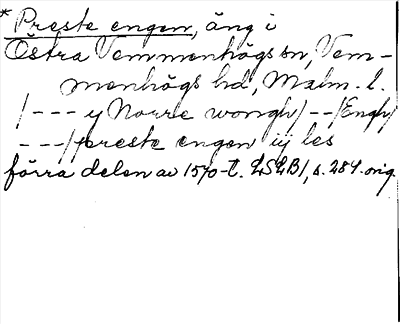 * Preste engen, äng i
Östra Vemmenhögs sn, Vem-
menhögs hd, Malm. l.
/--- y Norre wongh/--/Engh/
---/preste engen iij les
förra delen av 1570-t. LSLB1, s. 284. orig.